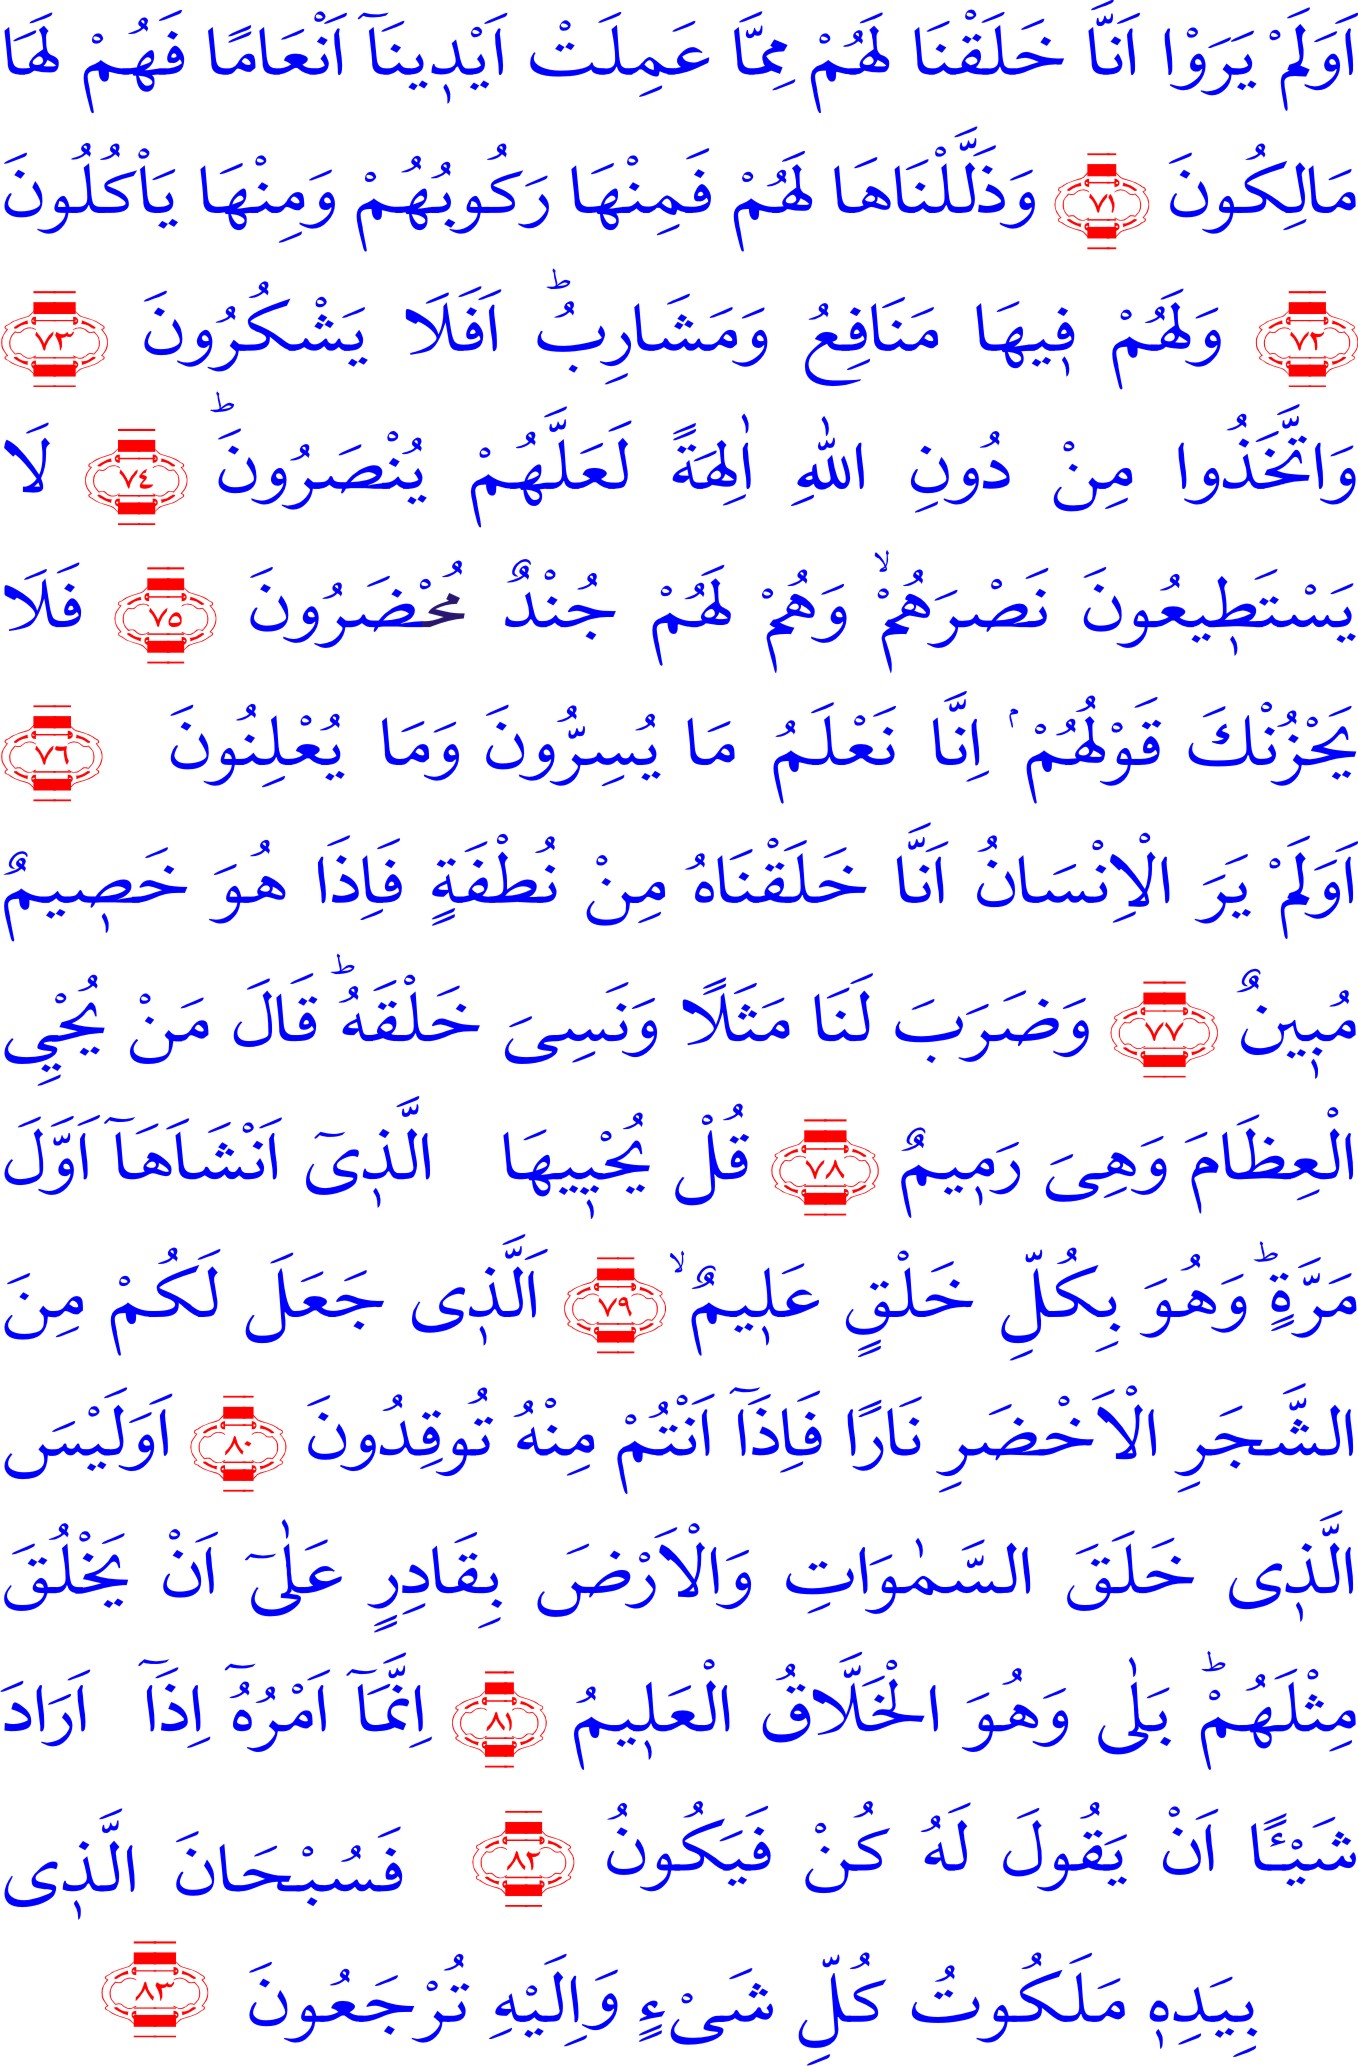 اَوَلَمْ يَرَوْا اَنَّا خَلَقْنَا لَهُمْ مِمَّا عَمِلَتْ اَيْد۪ينَٓا اَنْعَامًا فَهُمْ لَهَا
مَالِكُونَ ﴿٧١﴾ وَذَلَّلْنَاهَا لَهُمْ فَمِنْهَا رَكُوبُهُمْ وَمِنْهَا يَأْكُلُونَ
﴿٧٢﴾ وَلَهُمْ ف۪يهَا مَنَافِعُ وَمَشَارِبُۜ اَفَلَا يَشْكُرُونَ ﴿٧٣﴾
وَاتَّخَذُوا مِنْ دُونِ اللّٰهِ اٰلِهَةً لَعَلَّهُمْ يُنْصَرُونَۜ ﴿٧٤﴾ لَا
يَسْتَط۪يعُونَ نَصْرَهُمْۙ وَهُمْ لَهُمْ جُنْدٌ مُحْضَرُونَ ﴿٧٥﴾ فَلَا
يَحْزُنْكَ قَوْلُهُمْۢ اِنَّا نَعْلَمُ مَا يُسِرُّونَ وَمَا يُعْلِنُونَ ﴿٧٦﴾
اَوَلَمْ يَرَ الْاِنْسَانُ اَنَّا خَلَقْنَاهُ مِنْ نُطْفَةٍ فَاِذَا هُوَ خَص۪يمٌ
مُب۪ينٌ ﴿٧٧﴾ وَضَرَبَ لَنَا مَثَلًا وَنَسِىَ خَلْقَهُۜ قَالَ مَنْ يُحْيِي
الْعِظَامَ وَهِىَ رَم۪يمٌ ﴿٧٨﴾ قُلْ يُحْي۪يهَا الَّذ۪ىٓ اَنْشَاَهَٓا اَوَّلَ
مَرَّةٍۜ وَهُوَ بِكُلِّ خَلْقٍ عَل۪يمٌۙ ﴿٧٩﴾ اَلَّذ۪ى جَعَلَ لَكُمْ مِنَ
الشَّجَرِ الْاَخْضَرِ نَارًا فَاِذَٓا اَنْتُمْ مِنْهُ تُوقِدُونَ ﴿٨٠﴾ اَوَلَيْسَ
الَّذ۪ى خَلَقَ السَّمٰوَاتِ وَالْاَرْضَ بِقَادِرٍ عَلٰىٓ اَنْ يَخْلُقَ
مِثْلَهُمْۜ بَلٰى وَهُوَ الْخَلَّاقُ الْعَل۪يمُ ﴿٨١﴾ اِنَّمَٓا اَمْرُهُٓ اِذَٓا اَرَادَ
شَيْـًٔا اَنْ يَقُولَ لَهُ كُنْ فَيَكُونُ ﴿٨٢﴾ فَسُبْحَانَ الَّذ۪ى
بِيَدِه۪ مَلَكُوتُ كُلِّ شَىْءٍ وَاِلَيْهِ تُرْجَعُونَ ﴿٨٣﴾